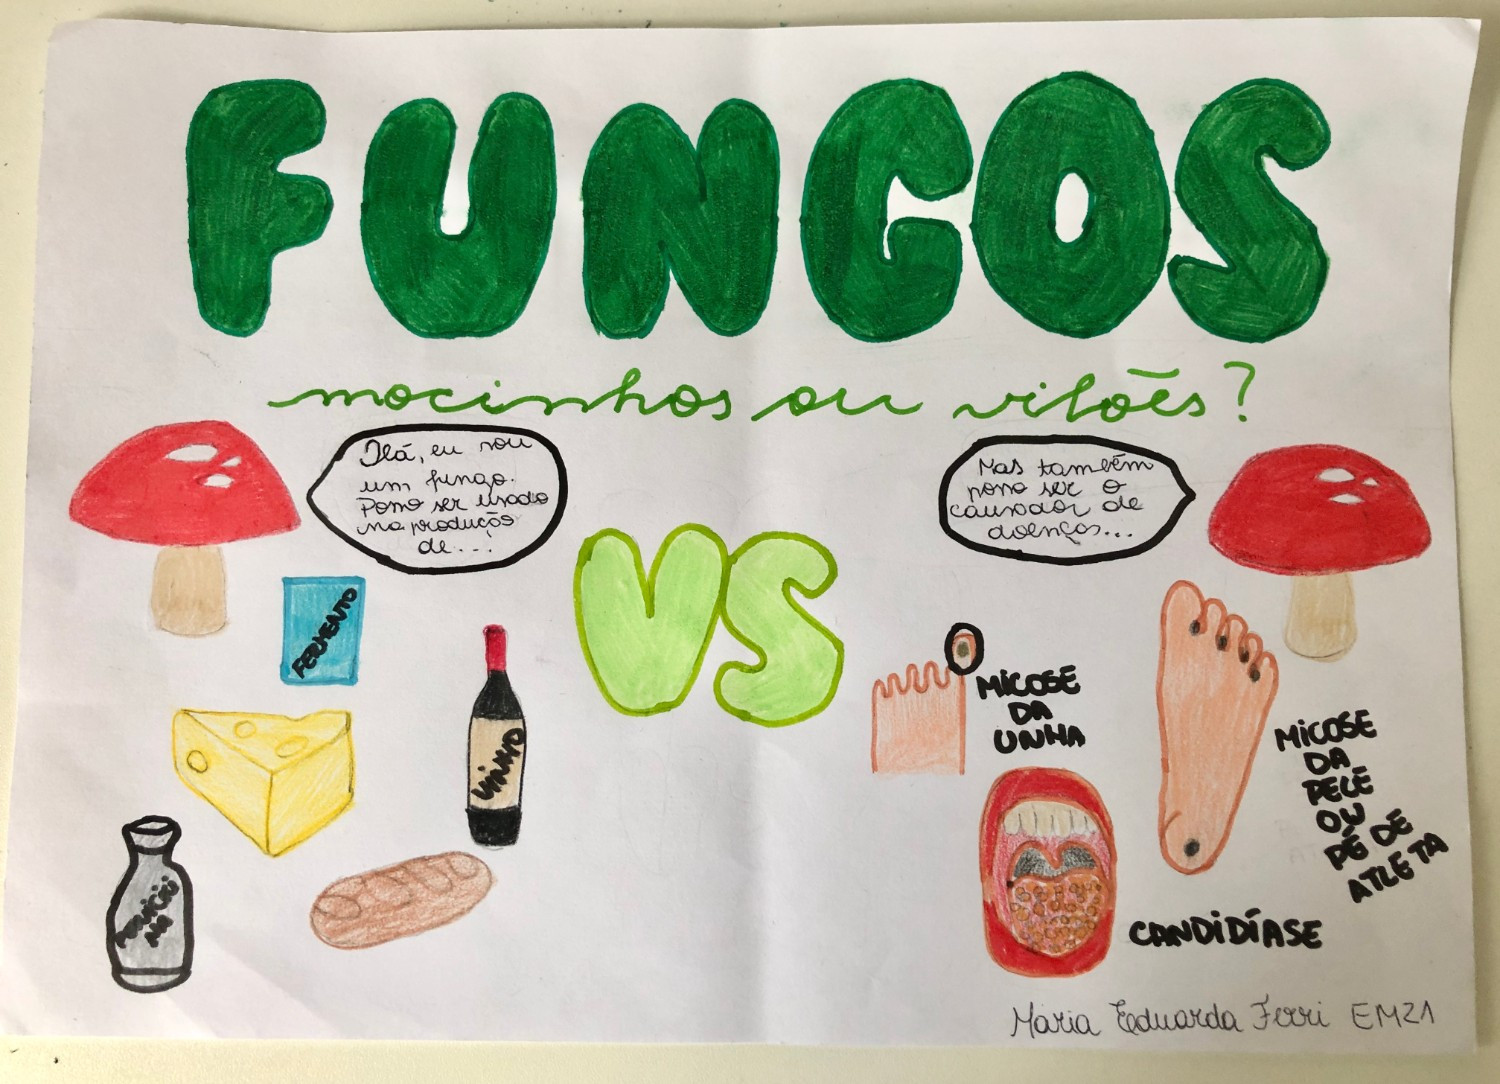 FUNGOS
mocinhos ou vilões?
Olá, eu sou
um fungo.
Posso ser usado
na produção
de...
Mas também
posso ser o
causador de
doenças...
VS
FERMENTO
VINHO
PENICILI
NA
MICOSE
DA
UNHA
MICOSE
DA
PELE
OU
PÉ DE
ATLETA
CANDIDÍASE
Maria Eduarda Ferri EM21